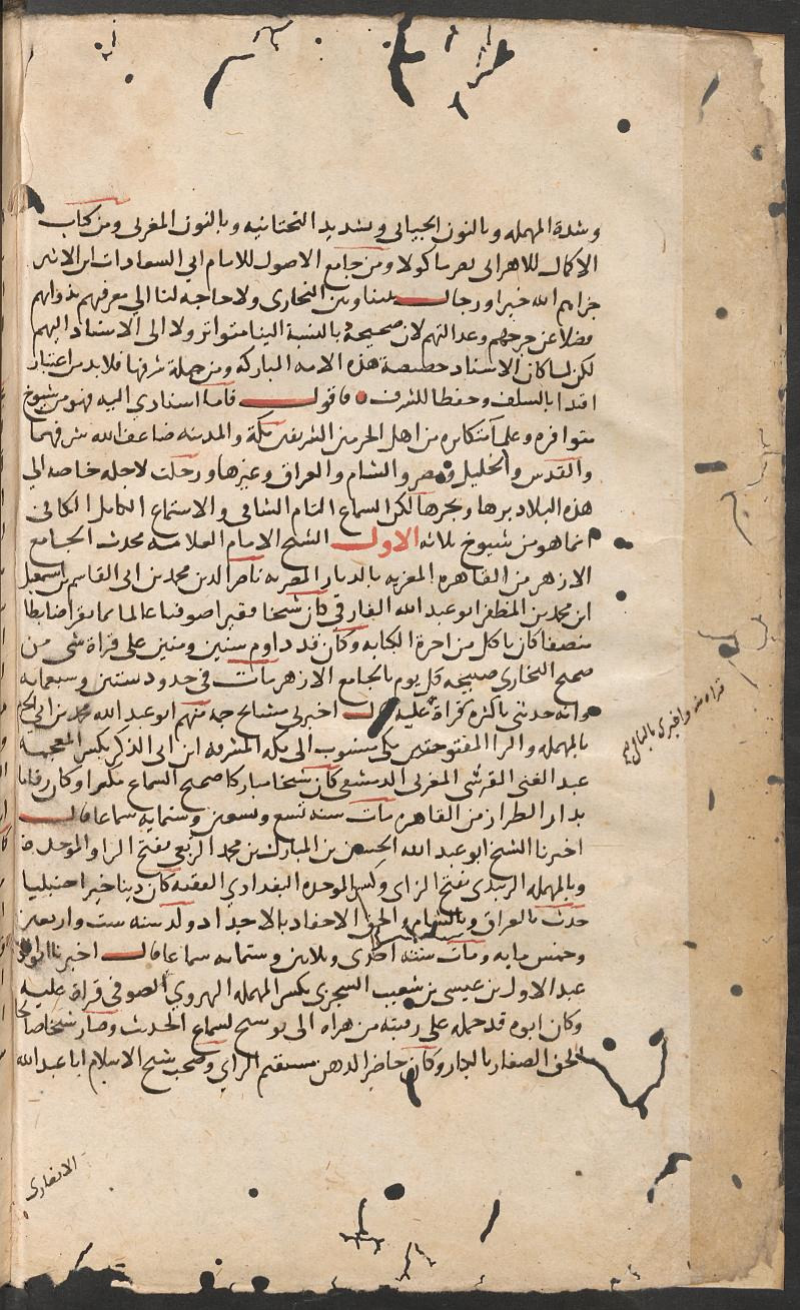 وشدة المهمله وبالنون الجياني وبشديد التحتانيه وبالنون المغربي ومن كتاب
الاكمال للامير ابي نصر ماكولا ومن جامع الاصول للامام ابي السعادات ابن الاثير
جزاهم الله خيرا ورجال بيننا وبين البخاري ولا حاجه لنا الي معرفتهم بذواتهم
فضلا عن جرحهم وعدالتهم لان صحيحه بالنسبة الينا متواتر ولا الى الاسناد اليهم
لكن لما كان الاسناد خصيصة هذه الامه المباركه ومن جملة شرفها فلا بد من اعتبار
اقتدا بالسلف وحفظا للشرف فاقول فاما اسنادي اليه فهو من شيوخ
متوافره وعلما متكاثره من اهل الحرمين الشريفين مكة والمدينه ضاعف الله شرفهما
والقدس والخليل ومصر والشام والعراق وغيرها ورحلت لاجله خاصه الي
هذه البلاد برها وبحرها لكن السماع التام الشافي والاستماع الكامل الكافي
انما هو من شيوخ ثلاثه الاول الشيخ الامام العلامه محدث الجامع
الازهر من القاهره المعزيه بالديار المصريه ناصر الدين محمد بن ابي القاسم بن اسمعيل
ابن محمد بن المظفر ابو عبد الله الفارقي كان شيخا فقيرا صوفيا عالما بما يقرا ضابطا
منصفا كان ياكل من اجرة الكتابه وكان قد داوم سنين ومنين على قراة شي من
صحيح البخاري صبيحه كل يوم بالجامع الازهر مات في حدود ستين وسبعمايه
وانه حدثني باكثره قراة عليه قال اخبرني مشايخ جه منهم ابو عبد الله محمد بن ابي الحرم
بالمهمله والرا المفتوحتين مكي منسوب الى مكه المشرفه ابن ابي الذكر بكسر المعجمه
عبد الغني القرشي المغربي الدمشقي كان شيخا مباركا صحيح السماع مكثرا وكان رقاما
بدار الطراز من القاهره مات سنه تسع وتسعين وستمايه سماعا قال
اخبرنا الشيخ ابو عبد الله الحسين بن المبارك بن محمد الربعي بفتح الرا والموحده
وبالمهمله الزبيدي بفتح الزاي وكسر الموحده البغدادي الفقيه كان دينا خيرا حنبليا
حدث بالعراق وبالشام والحق الاحفاد بالاجداد ولد سنه ست واربعين
وخمس مايه ومات سنة احدى وثلاثين وستمايه سماعا قال اخبرنا ابو الوقت
عبد الاول بن عيسى بن شعيب السجزي بكسر المهمله الهروي الصوفي قراة عليه
وكان ابوه قد حمله على رقبته من هراه الى بوسنج لسماع الحديث وصار شيخا صالحا
الحق الصغار بالكبار وكان حاضر الذهن مستقيم الراي وصحب شيخ الاسلام ابا عبد الله
الانصاري